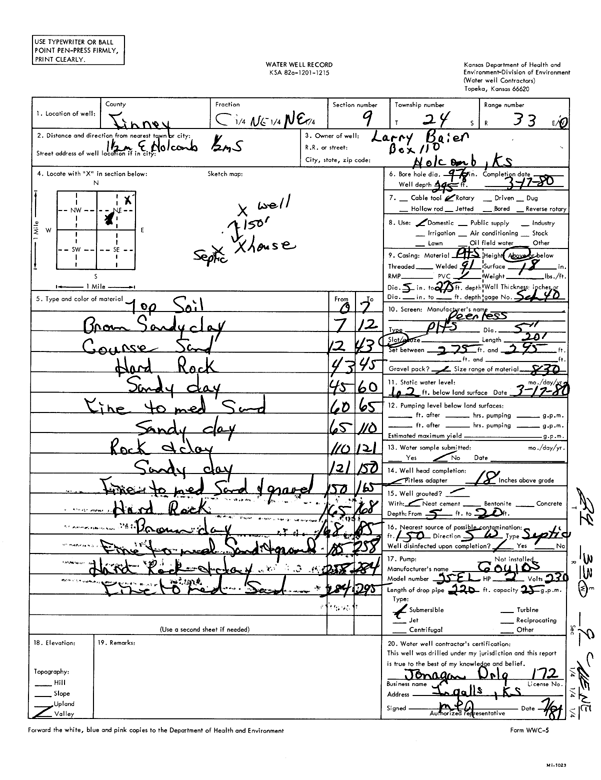 USE TYPEWRITER OR BALL
POINT PEN-PRESS FIRMLY,
PRINT CLEARLY.
WATER WELL RECORD
KSA 82a-1201-1215
Kansas Department of Health and
Environment-Division of Environment
(Water well Contractors)
Topeka, Kansas 66620
1. Location of well:
County
Finney
Fraction
C 1/4 NE 1/4 NE 1/4
Section number
9
Township number
T 24 S
Range number
R 33 E/W
2. Distance and direction from nearest town or city:
Street address of well location if in city:
1½m E Holcomb ½mS
3. Owner of well: Larry Baier
R.R. or street: Box 110
City, state, zip code: Holcomb, KS
4. Locate with "X" in section below:
Sketch map:
N
NW
NE
X
W
E
SW
SE
S
1 Mile
1 Mile
X well
150'
Septic X house
6. Bore hole dia. 9 7/8 in. Completion date
Well depth 295 ft. 3-17-80
7. Cable tool Rotary Driven Dug
Hollow rod Jetted Bored Reverse rotary
8. Use: Domestic Public supply Industry
Irrigation Air conditioning Stock
Lawn Oil field water Other
9. Casing: Material Height: Above or below
Threaded Welded Surface 18 in.
RMP PVC Weight lbs./ft.
Dia. 5 in. to 275 ft. depth Wall Thickness: inches or
Dia. in. to ft. depth gage No. Sch 40
5. Type and color of material
From To
Top Soil 0 7
Brown Sandy clay 7 12
Course Sand 12 43
Hard Rock 43 45
Sandy clay 45 60
Fine to med Sand 60 65
Sandy clay 65 110
Rock & clay 110 121
Sandy clay 121 150
Fine to med Sand & gravel 150 165
Hard Rock 165 168
Brown clay 168 185
Fine to med Sand & gravel 185 258
Hard Rock & clay 258 284
Fine to med Sand 284 295
(Use a second sheet if needed)
10. Screen: Manufacturer's name
Peerless
Type Dia. 5"
Slot/gauze Length 20'
Set between 275 ft. and 295 ft.
ft. and ft.
Gravel pack? Size range of material 830
11. Static water level: mo./day/yr.
62 ft. below land surface Date 3-17-80
12. Pumping level below land surfaces:
ft. after hrs. pumping g.p.m.
ft. after hrs. pumping g.p.m.
Estimated maximum yield g.p.m.
13. Water sample submitted: mo./day/yr.
Yes No Date
14. Well head completion:
Pitless adapter 18 Inches above grade
15. Well grouted?
With: Neat cement Bentonite Concrete
Depth: From 5 ft. to 20 ft.
16. Nearest source of possible contamination:
ft. 150 Direction SW Type Septic
Well disinfected upon completion? Yes No
17. Pump: Not installed
Manufacturer's name Goulds
Model number HP 2 Volts 230
Length of drop pipe 220 ft. capacity 25 g.p.m.
Type:
Submersible Turbine
Jet Reciprocating
Centrifugal Other
18. Elevation:
Topography:
Hill
Slope
Upland
Valley
19. Remarks:
20. Water well contractor's certification:
This well was drilled under my jurisdiction and this report
is true to the best of my knowledge and belief.
Jonagan Drlg 172
Business name License No.
Address Ingalls, KS
Signed Date
Authorized representative
24 33 W 9 C NE NE
T R E Sec 1/4 1/4 1/4
Forward the white, blue and pink copies to the Department of Health and Environment
Form WWC-5